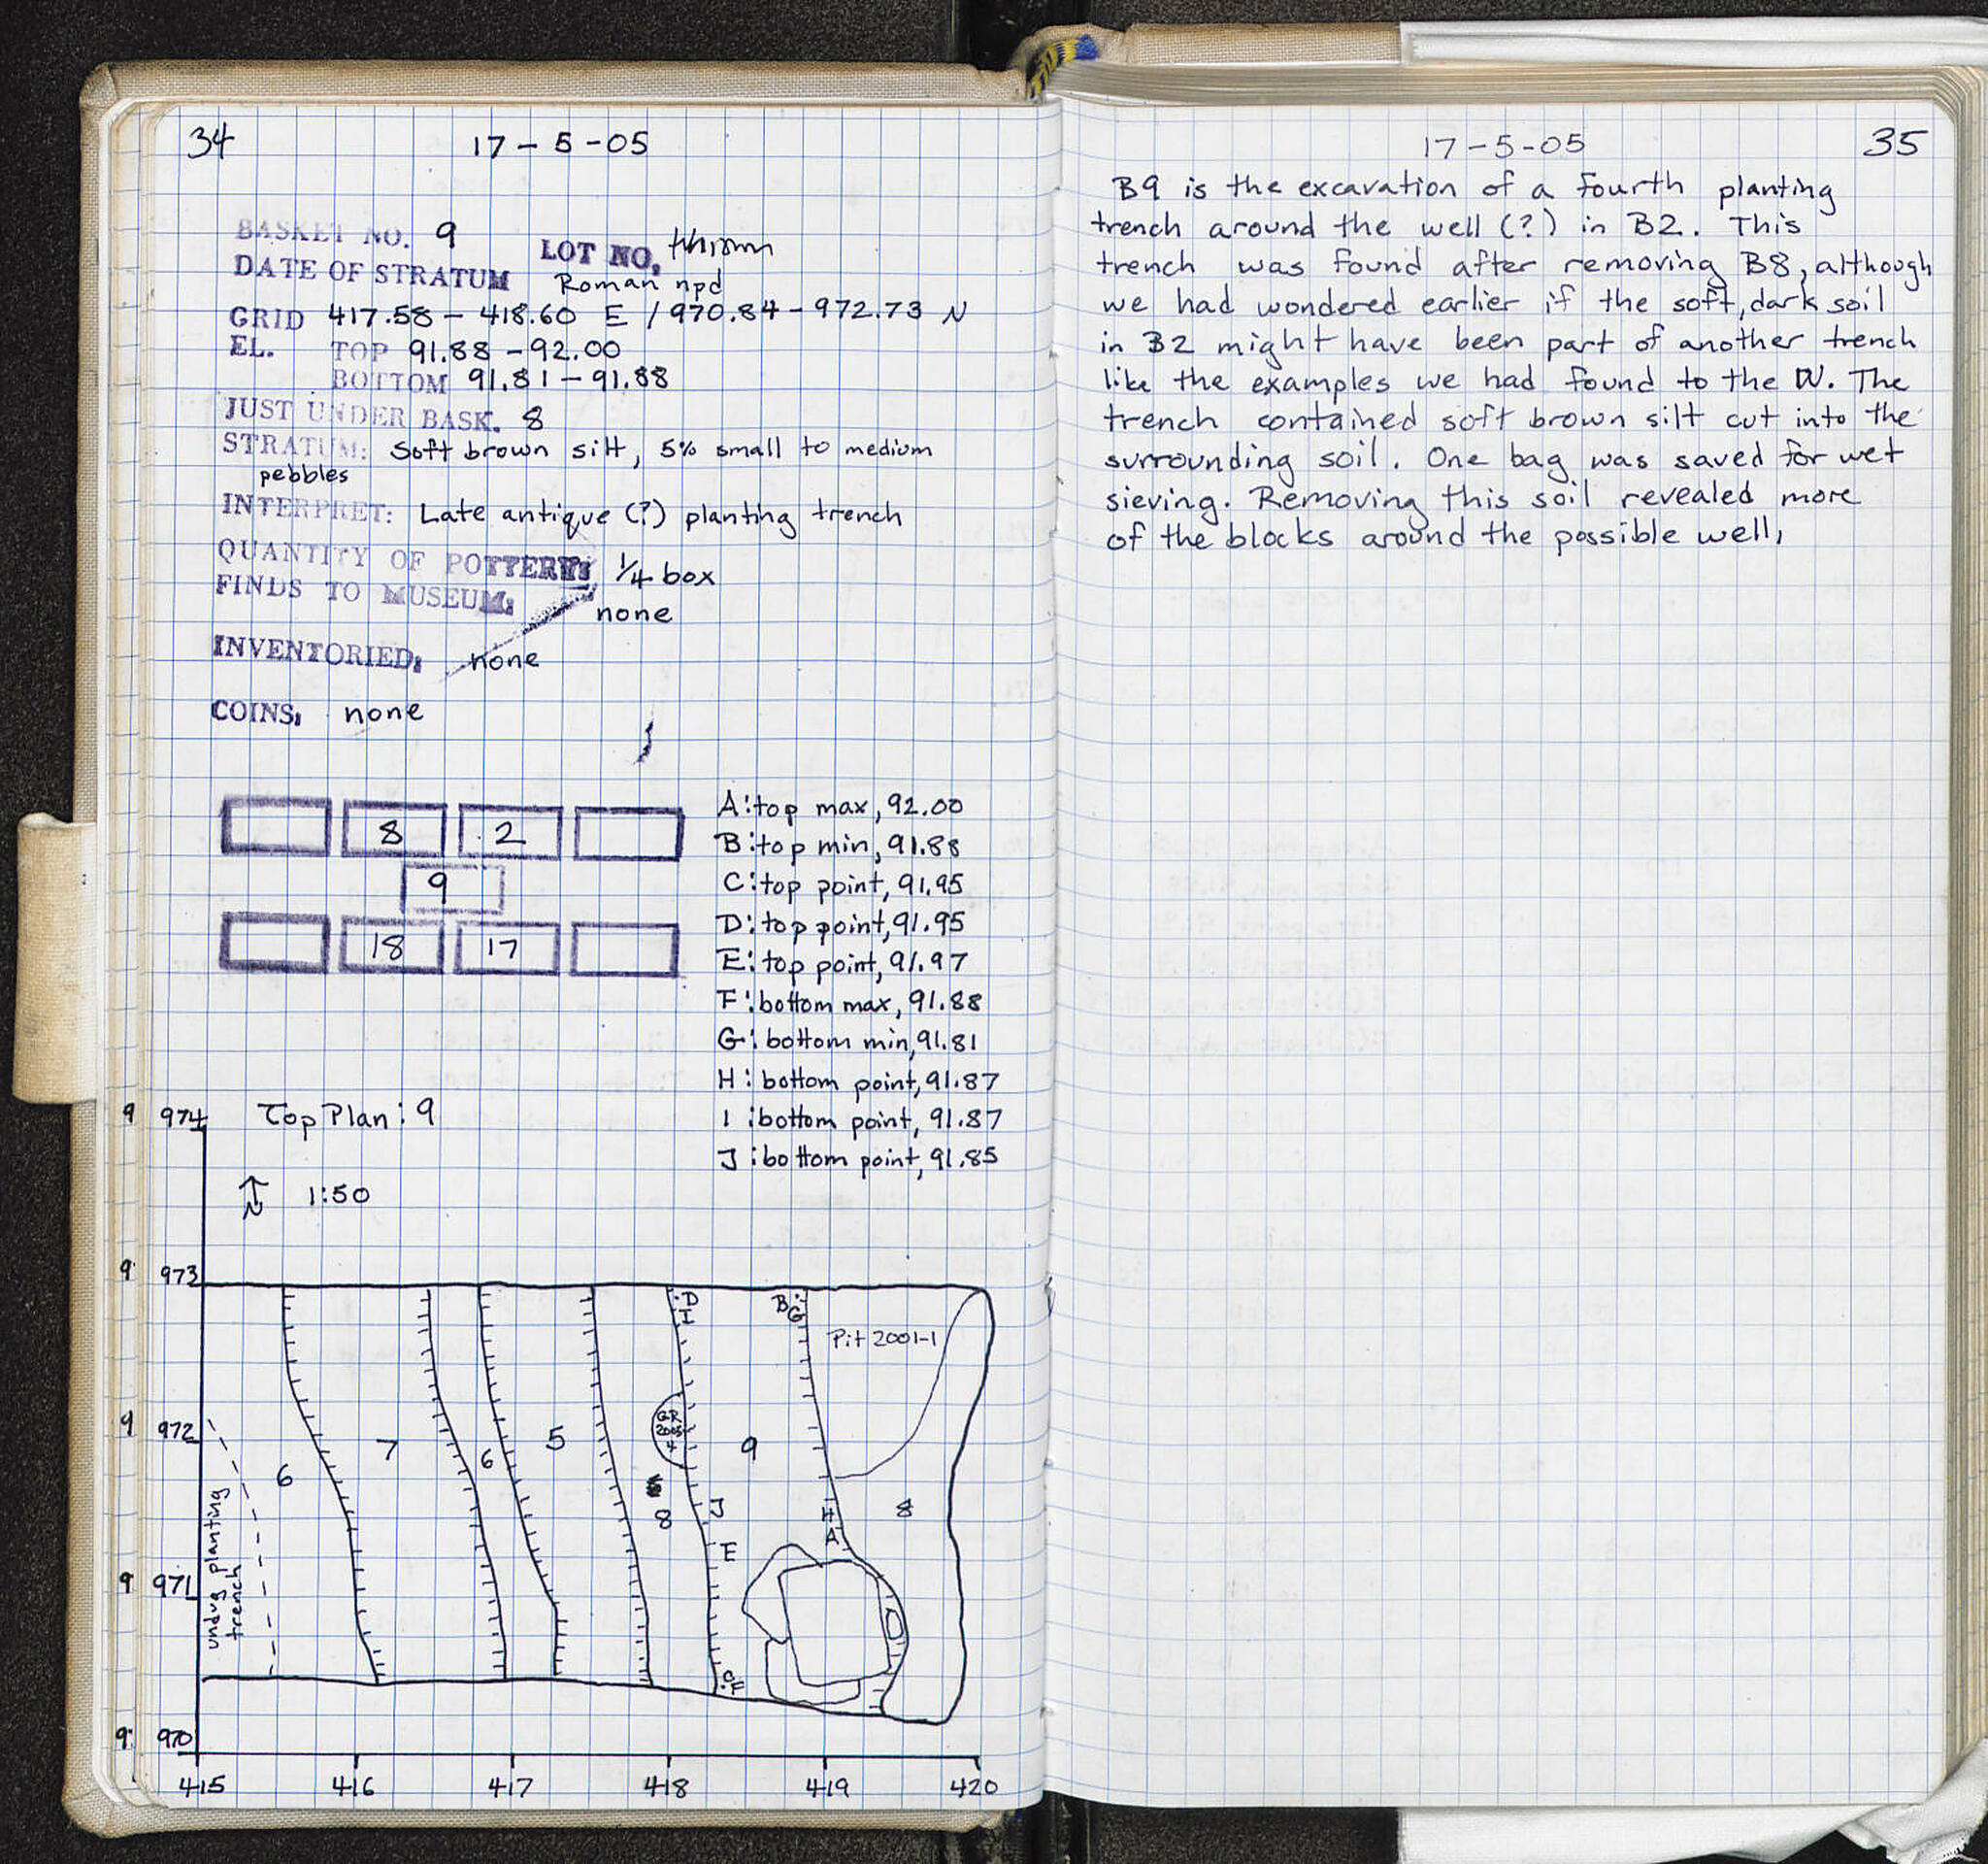 34
17-5-05
BASKET NO. 9
LOT NO.
DATE OF STRATUM Roman npd
GRID 417.58 - 418.60 E / 970.84 - 972.73 N
EL. TOP 91.88 - 92.00
BOTTOM 91.81 - 91.88
JUST UNDER BASK. 8
STRATUM: Soft brown silt, 5% small to medium
pebbles
INTERPRET: Late antique (?) planting trench
QUANTITY OF POTTERY: 1/4 box
FINDS TO MUSEUM: none
INVENTORIED: none
COINS: none
8 2
9
18 17
A: top max, 92.00
B: top min, 91.88
C: top point, 91.95
D: top point, 91.95
E: top point, 91.97
F: bottom max, 91.88
G: bottom min, 91.81
H: bottom point, 91.87
I: bottom point, 91.87
J: bottom point, 91.85
9 974 Top Plan: 9
N 1:50
9 973
B G
Pit 2001-1
9 972
6 7 6 5 8 9 8
J
E
H
A
9 971
undug planting
trench
9 970
415 416 417 418 419 420
17-5-05
35
B9 is the excavation of a fourth planting
trench around the well (?) in B2. This
trench was found after removing B8, although
we had wondered earlier if the soft, dark soil
in B2 might have been part of another trench
like the examples we had found to the W. The
trench contained soft brown silt cut into the
surrounding soil. One bag was saved for wet
sieving. Removing this soil revealed more
of the blocks around the possible well,